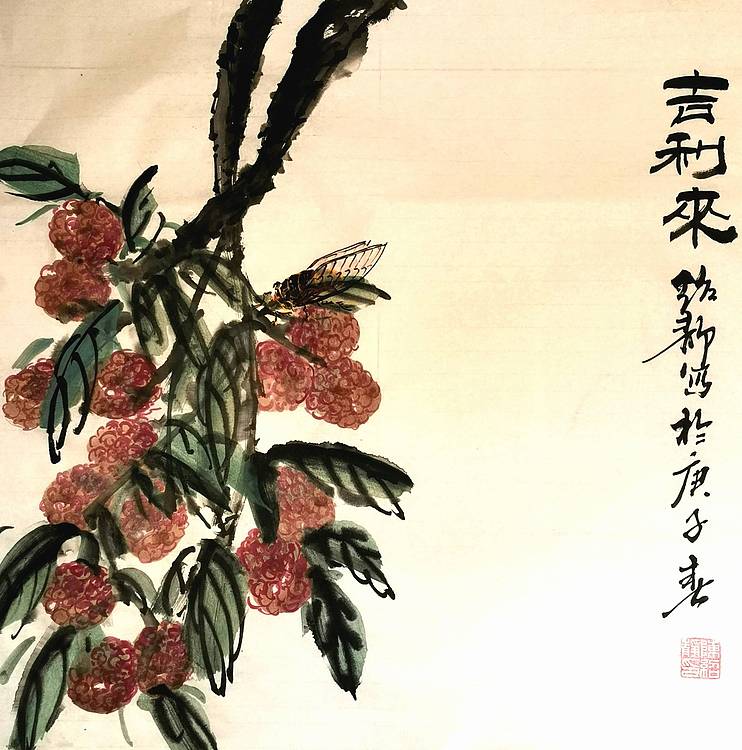 吉利來
紹卿寫於庚子春